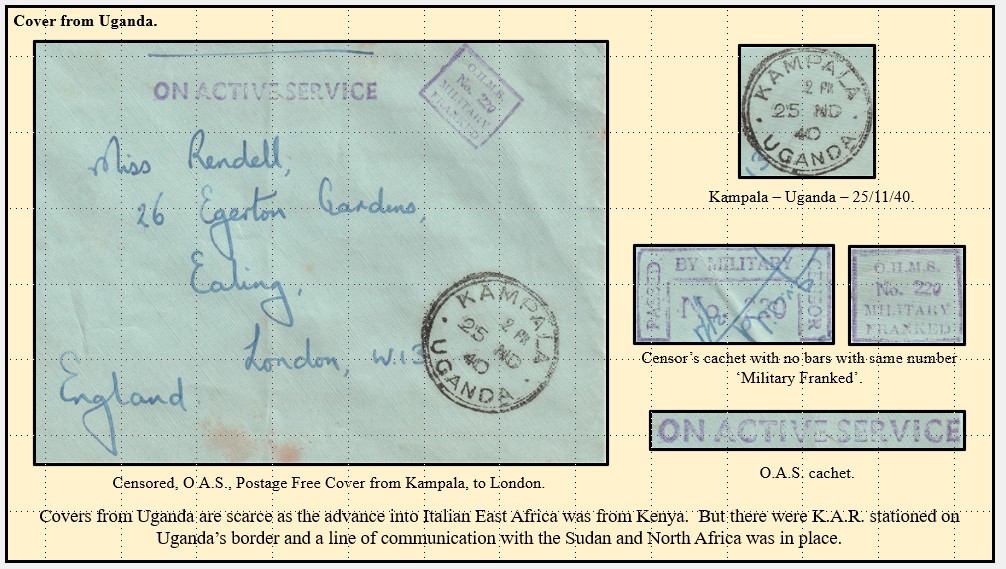 Cover from Uganda.
ON ACTIVE SERVICE
O.H.M.S.
No. 229
MILITARY
FRANKED
Miss Rendell,
26 Egerton Gardens,
Ealing,
London, W.13
England
KAMPALA
2 PM
25 NO
40
UGANDA
Censored, O.A.S., Postage Free Cover from Kampala, to London.
KAMPALA
2 PM
25 NO
40
UGANDA
Kampala – Uganda – 25/11/40.
PASSED
BY MILITARY
CENSOR
No. 229
O.H.M.S.
No. 229
MILITARY
FRANKED
Censor’s cachet with no bars with same number
‘Military Franked’.
ON ACTIVE SERVICE
O.A.S. cachet.
Covers from Uganda are scarce as the advance into Italian East Africa was from Kenya.  But there were K.A.R. stationed on
Uganda’s border and a line of communication with the Sudan and North Africa was in place.